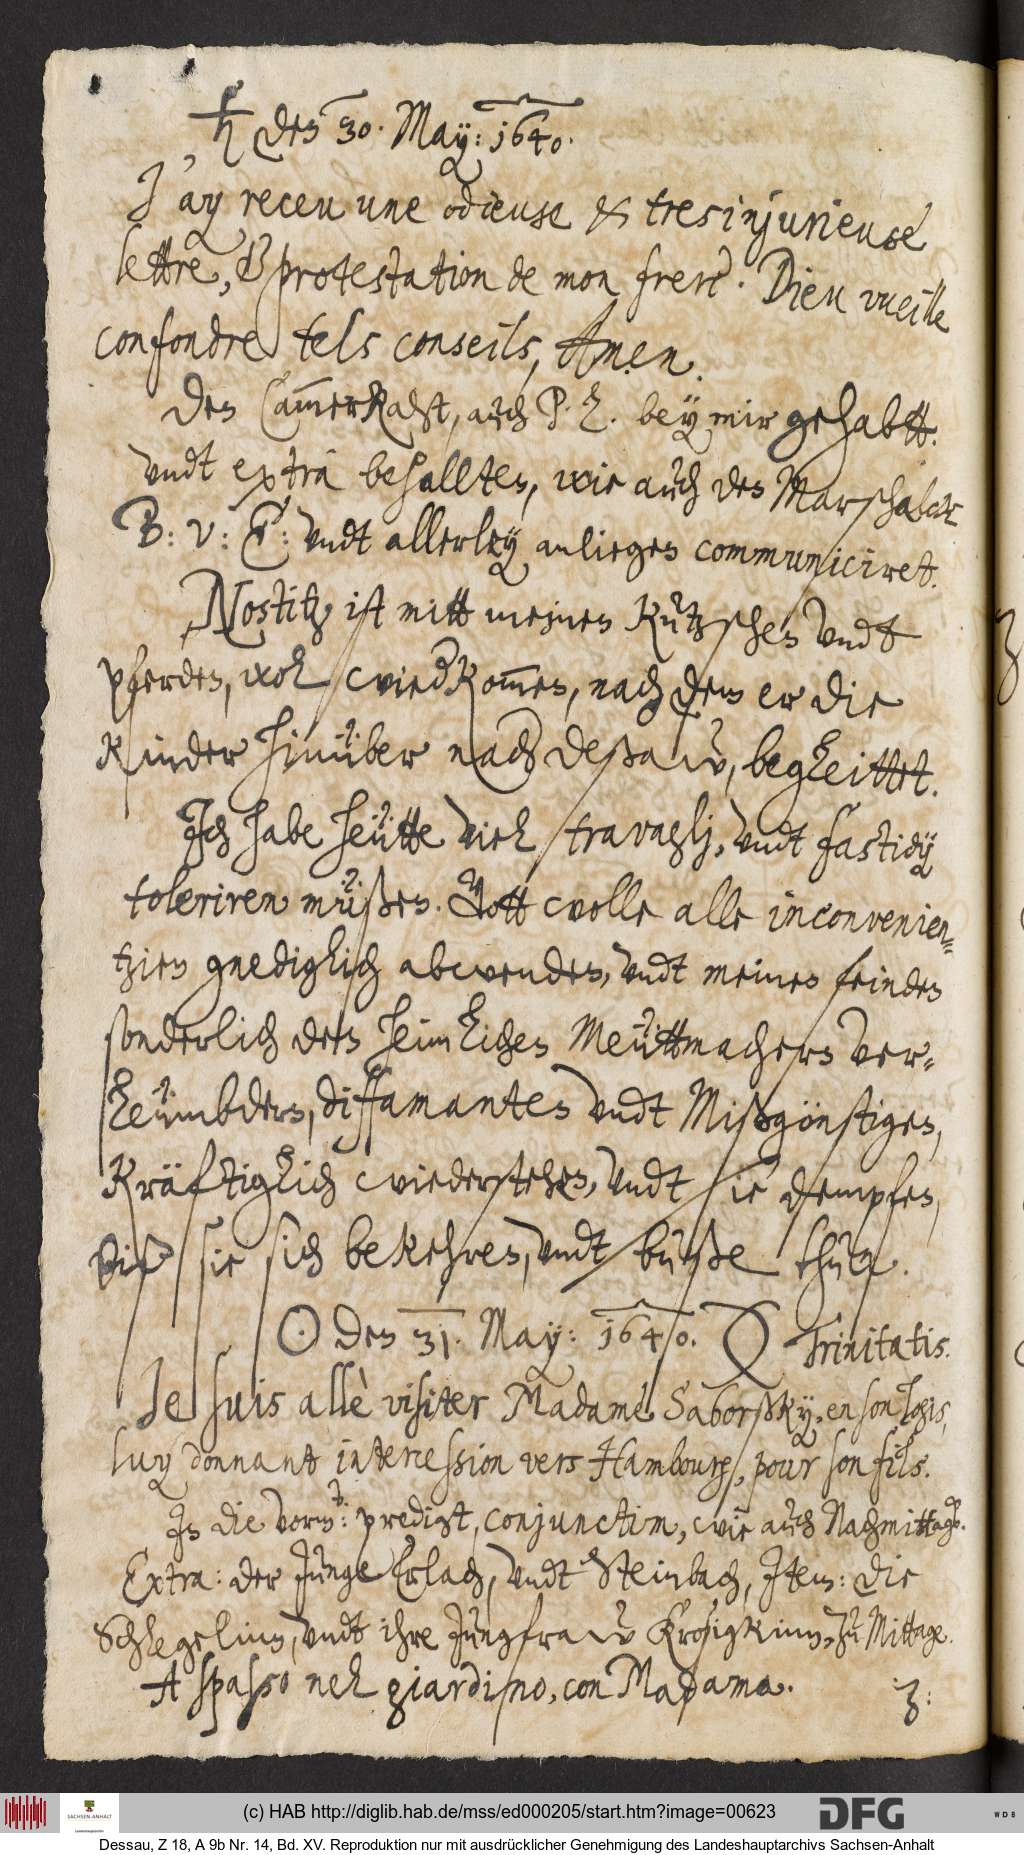 ♄ den 30. May: 1640.
J'ay receu une odieuse & tresinjurieuse
lettre, & protestation de mon frere. Dieu vueille
confondre tels conseils, Amen.
Den CammerRaht, auch P. L. bey mir gehabtt.
vndt extra behallten, wie auch den Marschalck
B: v: E: vndt allerley anliegen communiciret.
Nostitz ist mitt meinen Kutzschen vndt
pferden, wol wied[er]kommen, nach dem er die
Kinder hinüber nach Deßaw, begleittet.
Jch habe heütte viel travaglj, vndt fastidij
toleriren müßen. Gott wolle alle inconvenien-
tzien gnediglich abwenden, vndt meinen feinden
sonderlich den heimlichen Meüttmachern ver-
leümbdern, diffamanten vndt Mißgönstigen,
Kräftiglich wiederstehen, vndt sie dempfen,
biß sie sich bekehren, vndt buße thun.
☉ den 31. May: 1640. Trinitatis.
Je suis allè visiter Madame Saborßky, en son logis,
luy donnant intercession vers Hambourg, pour son fils.
Jn die vorm: predigt, conjunctim, wie auch Nachmittags.
Extra: der Junge Erlach, vndt Steinbach, Jtem: die
Schlegelinn, vndt ihre Jungfraw Krosigkinn, zu Mittage.
A spasso nel giardino, con Madama.
(c) HAB http://diglib.hab.de/mss/ed000205/start.htm?image=00623
SACHSEN-ANHALT
DFG
WDB
Dessau, Z 18, A 9b Nr. 14, Bd. XV. Reproduktion nur mit ausdrücklicher Genehmigung des Landeshauptarchivs Sachsen-Anhalt